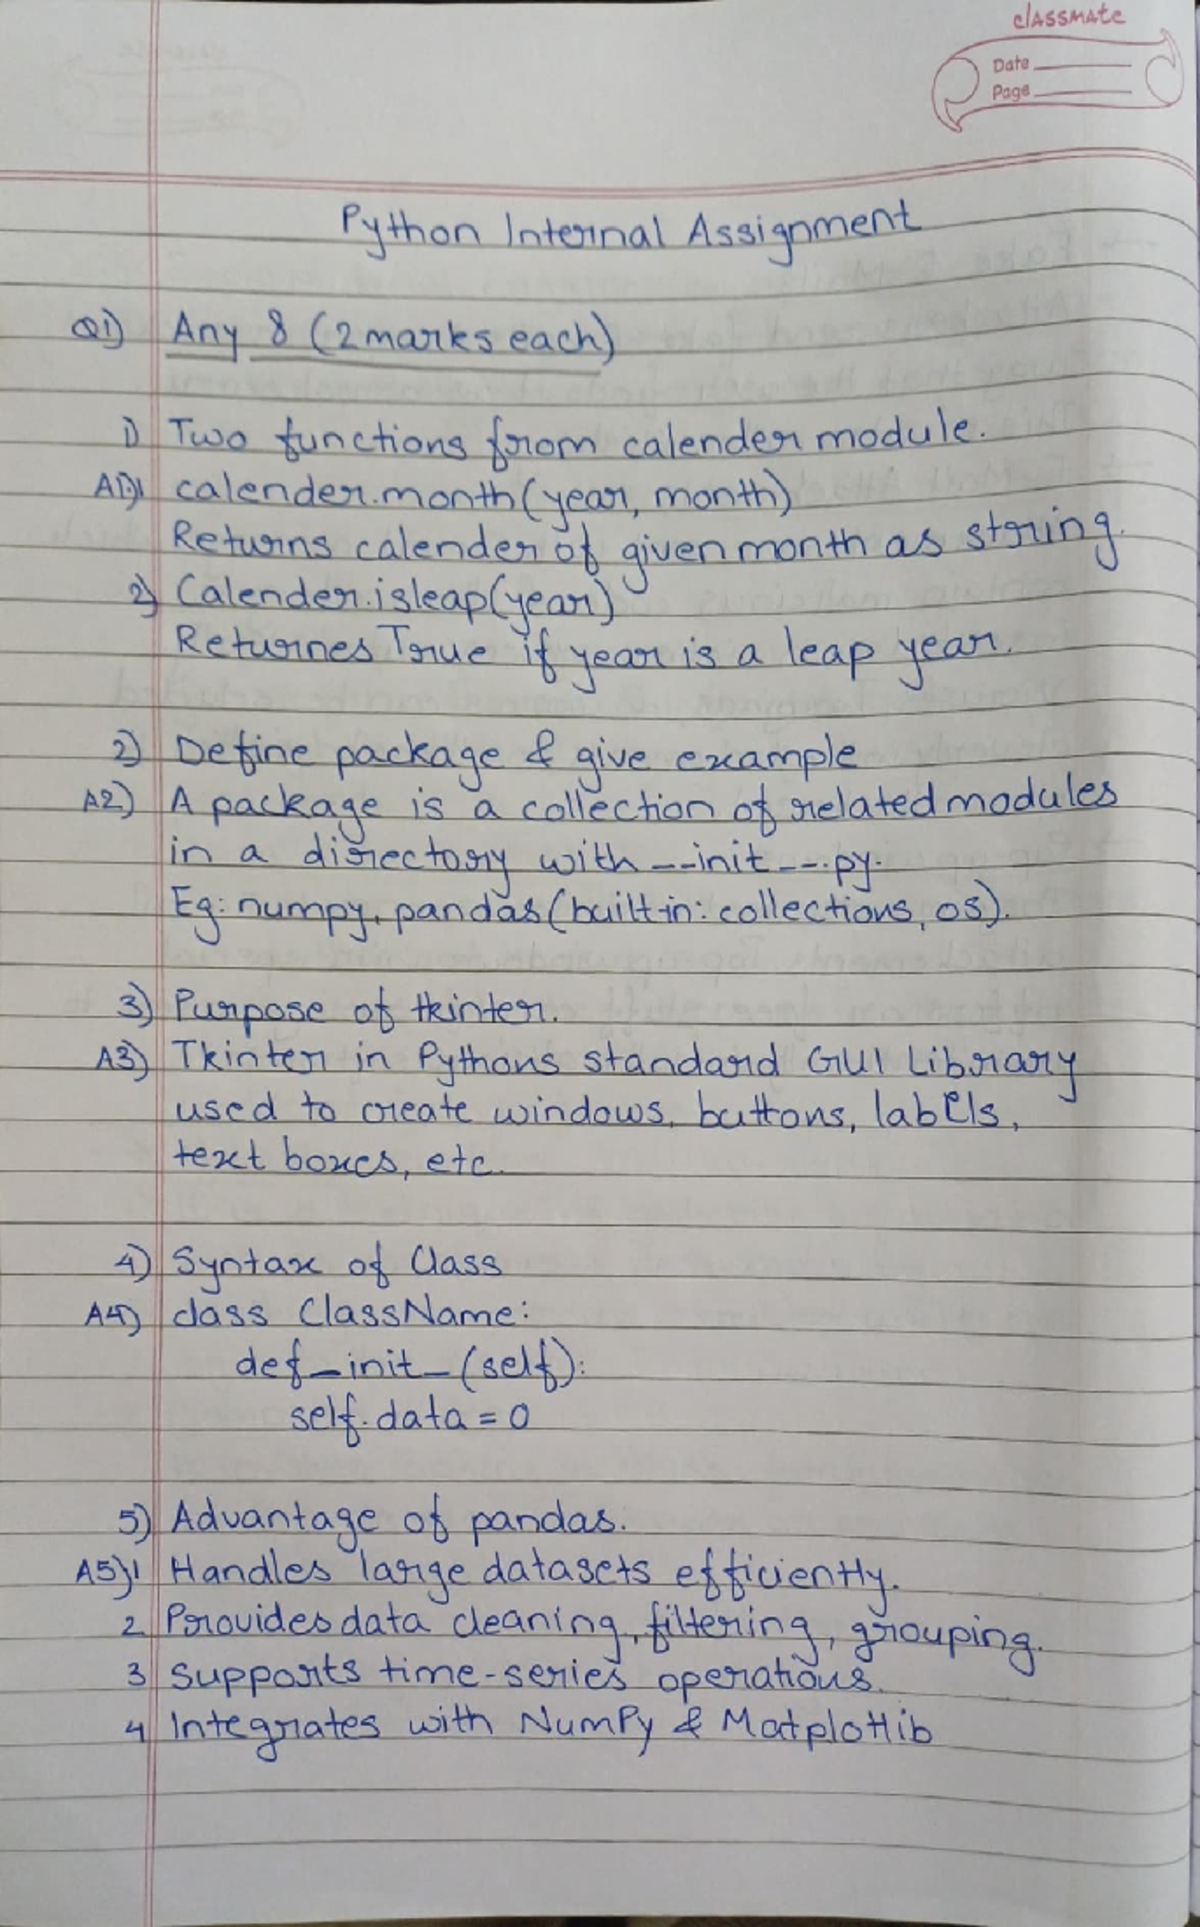 classmate
Date
Page
Python Internal Assignment
Q1) Any 8 (2 marks each)
1) Two functions from calender module.
A1)1 calender.month(year, month)
Returns calender of given month as string.
2) Calender.isleap(year)
Returnes True if year is a leap year.
2) Define package & give example
A2) A package is a collection of related modules
in a directory with --init--.py.
Eg: numpy, pandas (built-in: collections, os).
3) Purpose of tkinter.
A3) Tkinter in Pythons standard GUI Library
used to create windows, buttons, labels,
text boxes, etc.
4) Syntax of Class
A4) class ClassName:
def _init_(self):
self.data = 0
5) Advantage of pandas.
A5)1 Handles large datasets efficiently.
2 Provides data cleaning, filtering, grouping.
3 Supports time-series operations.
4 Integrates with NumPy & Matplotlib